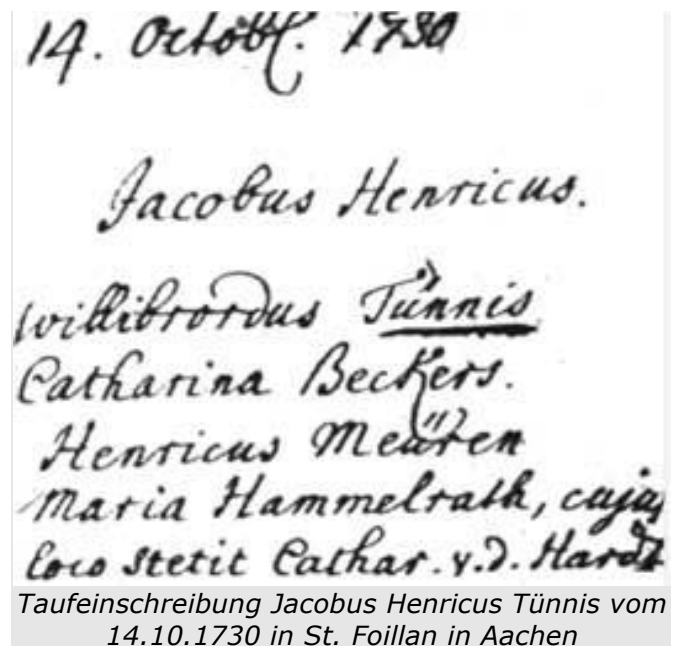 14. Octobr. 1730
Jacobus Henricus.
Willibrordus Tünnis
Catharina Beckers.
Henricus Meüren
Maria Hammelrath, cujus
loco stetit Cathar. v.d. Hardt
Taufeinschreibung Jacobus Henricus Tünnis vom
14.10.1730 in St. Foillan in Aachen